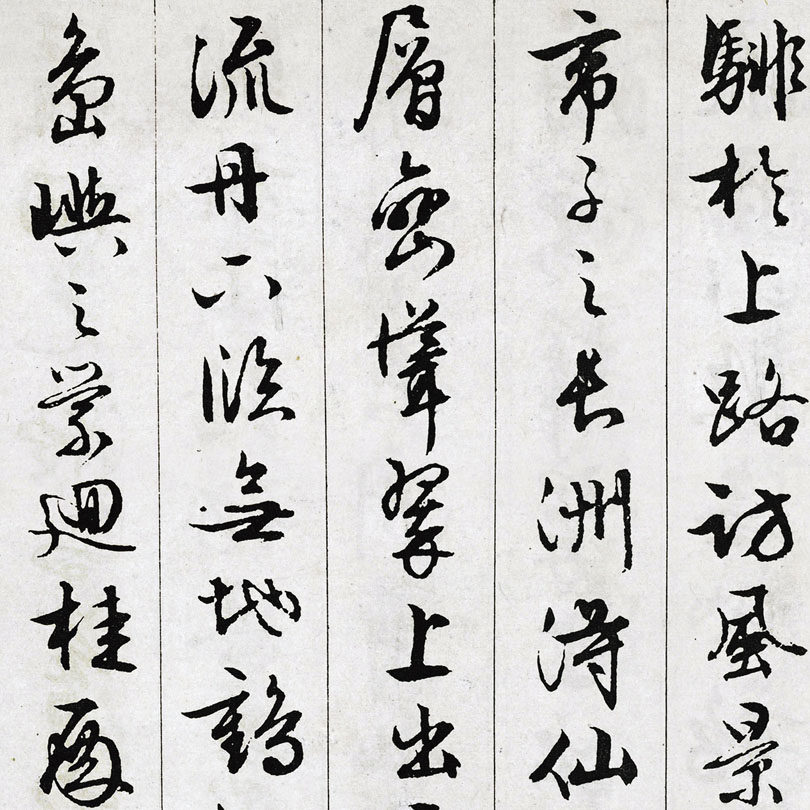 騑於上路訪風景
帝子之長洲得仙
層巒聳翠上出
流丹下臨無地鶴
島嶼之縈廻桂殿